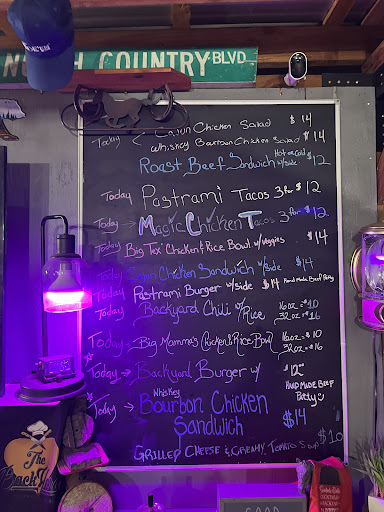 COUNTRY BLVD
Today Cajun Chicken Salad $14
Whiskey Bourbon Chicken Salad $14
Roast Beef Sandwich Hot or Cold w/side $12
Today Pastrami Tacos 3 for $12
Today Magic Chicken Tacos 3 for $12
Today Big Tex Chicken & Rice Bowl w/Veggies $14
Today Cajun Chicken Sandwich w/side $14
Today Pastrami Burger w/side $14 Hand Made Beef Patty
Today Backyard Chili w/Rice 16oz = $10
32oz = $16
Today Big Momma's Chicken & Rice Bowl 16oz = $10
32oz = $16
Today Backyard Burger w/ $12
Hand Made Beef Patty
Today Whiskey
Bourbon Chicken
Sandwich $14
Grilled Cheese & Creamy Tomato Soup $10
The